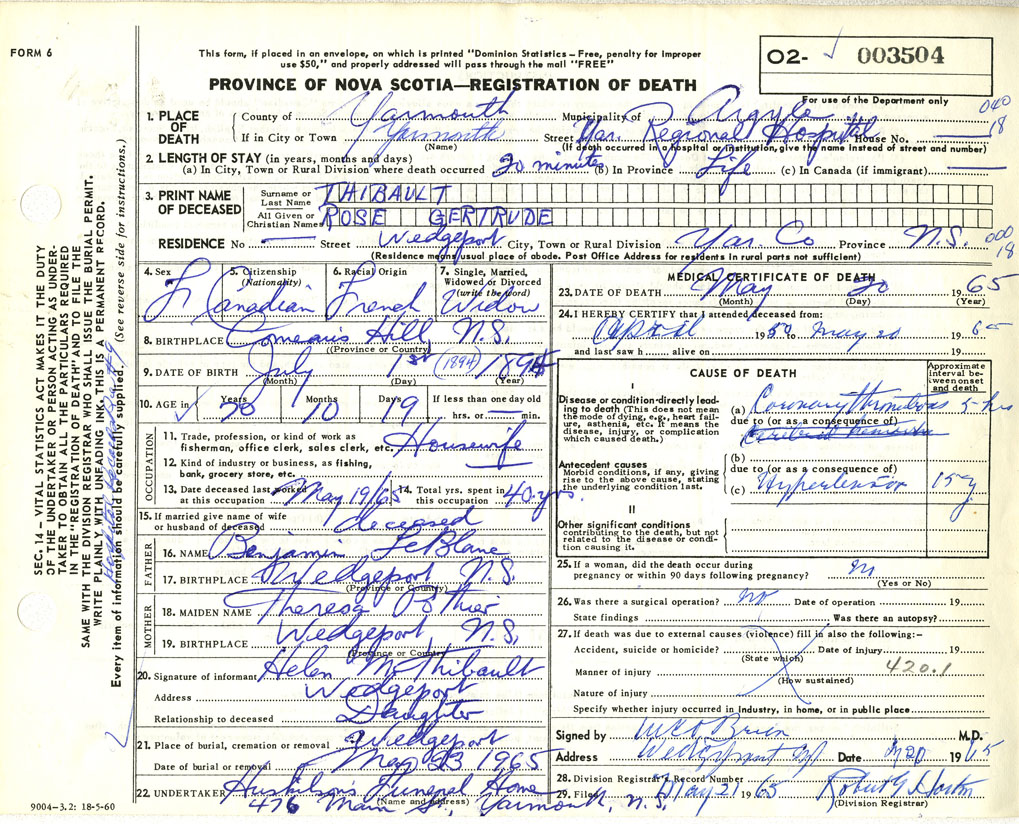 FORM 6
This form, if placed in an envelope, on which is printed "Dominion Statistics – Free, penalty for improper
use $50," and properly addressed will pass through the mail "FREE"
02- 003504
PROVINCE OF NOVA SCOTIA—REGISTRATION OF DEATH
For use of the Department only
1. PLACE OF DEATH
County of Yarmouth Municipality of Argyle
040
18
If in City or Town Yarmouth Street Yar. Regional Hospital House No.
(Name) (If death occurred in a hospital or institution, give the name instead of street and number)
2. LENGTH OF STAY (in years, months and days)
(a) In City, Town or Rural Division where death occurred 20 minutes (b) In Province Life (c) In Canada (if immigrant)
3. PRINT NAME OF DECEASED
Surname or Last Name THIBAULT
All Given or Christian Names ROSE GERTRUDE
RESIDENCE No Street Wedgeport City, Town or Rural Division Yar. Co Province N.S.
000
18
(Residence means usual place of abode. Post Office Address for residents in rural parts not sufficient)
4. Sex F
5. Citizenship (Nationality) Canadian
6. Racial Origin French
7. Single, Married, Widowed or Divorced (write the word) Widow
8. BIRTHPLACE Comeau's Hill, N.S.
(Province or Country)
9. DATE OF BIRTH July 1st (1894) 1894
(Month) (Day) (Year)
10. AGE in Years 70 Months 10 Days 19 If less than one day old
hrs. or min.
OCCUPATION
11. Trade, profession, or kind of work as fisherman, office clerk, sales clerk, etc. Housewife
12. Kind of industry or business, as fishing, bank, grocery store, etc.
13. Date deceased last worked at this occupation May 19/65 14. Total yrs. spent in this occupation 40 yrs.
15. If married give name of wife or husband of deceased deceased
FATHER
16. NAME Benjamin LeBlanc
17. BIRTHPLACE Wedgeport N.S.
(Province or Country)
MOTHER
18. MAIDEN NAME Theresa Pothier
19. BIRTHPLACE Wedgeport, N.S.
(Province or Country)
20. Signature of informant Helen M. Thibault
Address Wedgeport
Relationship to deceased Daughter
21. Place of burial, cremation or removal Wedgeport
Date of burial or removal May 23 1965
22. UNDERTAKER Huskilson's Funeral Home
(Name and address) 476 Main St., Yarmouth, N.S.
MEDICAL CERTIFICATE OF DEATH
23. DATE OF DEATH May 20 1965
(Month) (Day) (Year)
24. I HEREBY CERTIFY that I attended deceased from:
April 19 to May 20 1965
and last saw h alive on 19
CAUSE OF DEATH
Approximate interval between onset and death
I
Disease or condition directly leading to death (This does not mean the mode of dying, e.g., heart failure, asthenia, etc. It means the disease, injury, or complication which caused death.)
(a) Coronary thrombosis 5 hrs
due to (or as a consequence of)
Antecedent causes
Morbid conditions, if any, giving rise to the above cause, stating the underlying condition last.
(b)
due to (or as a consequence of)
(c) Hypertension 15 y
II
Other significant conditions
contributing to the death, but not related to the disease or condition causing it.
25. If a woman, did the death occur during pregnancy or within 90 days following pregnancy? No
(Yes or No)
26. Was there a surgical operation? no Date of operation 19
State findings Was there an autopsy?
27. If death was due to external causes (violence) fill in also the following:–
Accident, suicide or homicide? Date of injury 19
(State which)
420.1
Manner of injury
(How sustained)
Nature of injury
Specify whether injury occurred in industry, in home, or in public place
Signed by O'Brien M.D.
Address Wedgeport Date M 20 1965
28. Division Registrar's Record Number
29. Filed May 21 1965
(Division Registrar)
SEC. 14 – VITAL STATISTICS ACT MAKES IT THE DUTY
OF THE UNDERTAKER OR PERSON ACTING AS UNDER-
TAKER TO OBTAIN ALL THE PARTICULARS REQUIRED
IN THE "REGISTRATION OF DEATH" AND TO FILE THE
SAME WITH THE DIVISION REGISTRAR WHO SHALL ISSUE THE BURIAL PERMIT.
WRITE PLAINLY, WITH UNFADING INK, THIS IS A PERMANENT RECORD.
Every item of information should be carefully supplied. (See reverse side for instructions.)
9004–3.2: 18-5-60